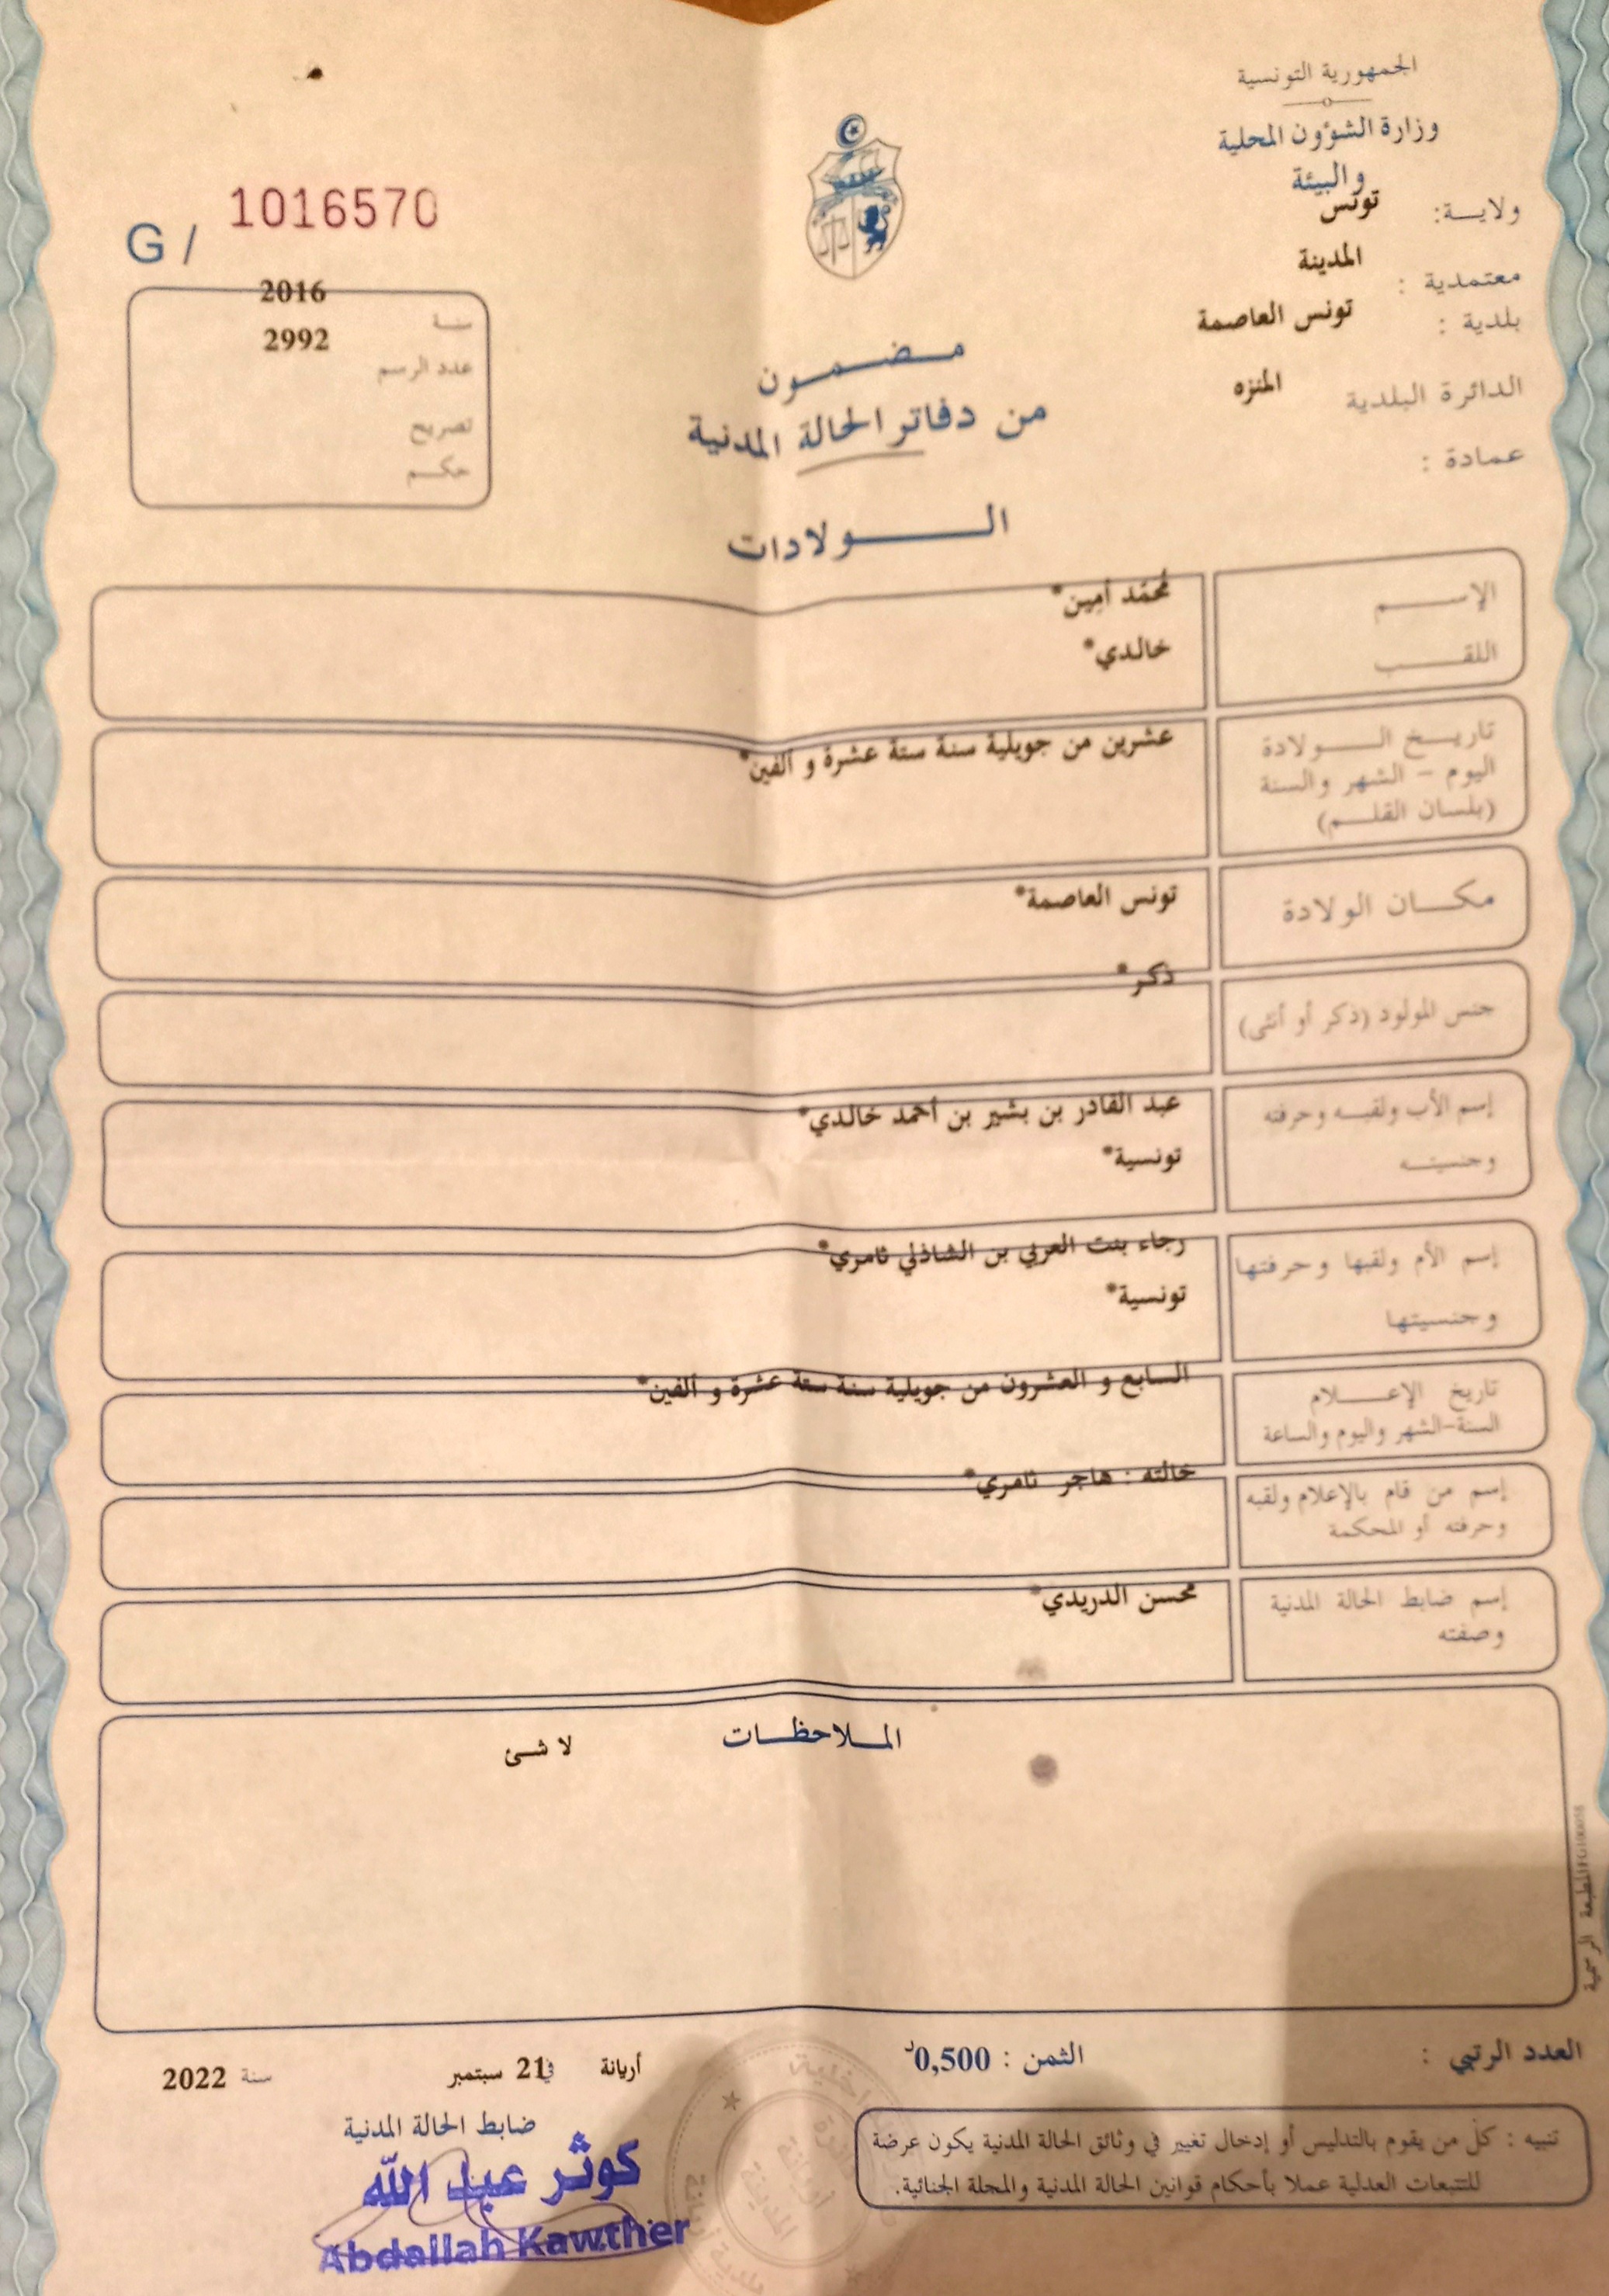 الجمهورية التونسية
وزارة الشؤون المحلية
والبيئة
ولايــة: تونس
معتمدية : المدينة
بلدية : تونس العاصمة
الدائرة البلدية المنزه
عمادة :
G / 1016570
سنة 2016
عدد الرسم 2992
تصريح
حكم
مضمون
من دفاتر الحالة المدنية
الولادات
الإسم محمّد أمين*
اللقب خالدي*
تاريخ الولادة عشرين من جويلية سنة ستة عشرة و ألفين*
اليوم - الشهر والسنة
(بلسان القلم)
مكان الولادة تونس العاصمة*
جنس المولود (ذكر أو أنثى) ذكر*
إسم الأب ولقبه وحرفته عبد القادر بن بشير بن أحمد خالدي*
وجنسيته تونسية*
إسم الأم ولقبها وحرفتها رجاء بنت العربي بن الشاذلي ثامري*
وجنسيتها تونسية*
تاريخ الإعلام السابع و العشرون من جويلية سنة ستة عشرة و ألفين*
السنة-الشهر واليوم والساعة
إسم من قام بالإعلام ولقبه خالته : هاجر ثامري*
وحرفته أو المحكمة
إسم ضابط الحالة المدنية محسن الدريدي*
وصفته
الملاحظات
لا شئ
المطبعة الرسمية
العدد الرتبي :
الثمن : 0,500د
أريانة في 21 سبتمبر سنة 2022
ضابط الحالة المدنية
كوثر عبد الله
Abdallah Kawther
تنبيه : كلّ من يقوم بالتدليس أو إدخال تغيير في وثائق الحالة المدنية يكون عرضة
للتتبعات العدلية عملا بأحكام قوانين الحالة المدنية والمجلة الجنائية.